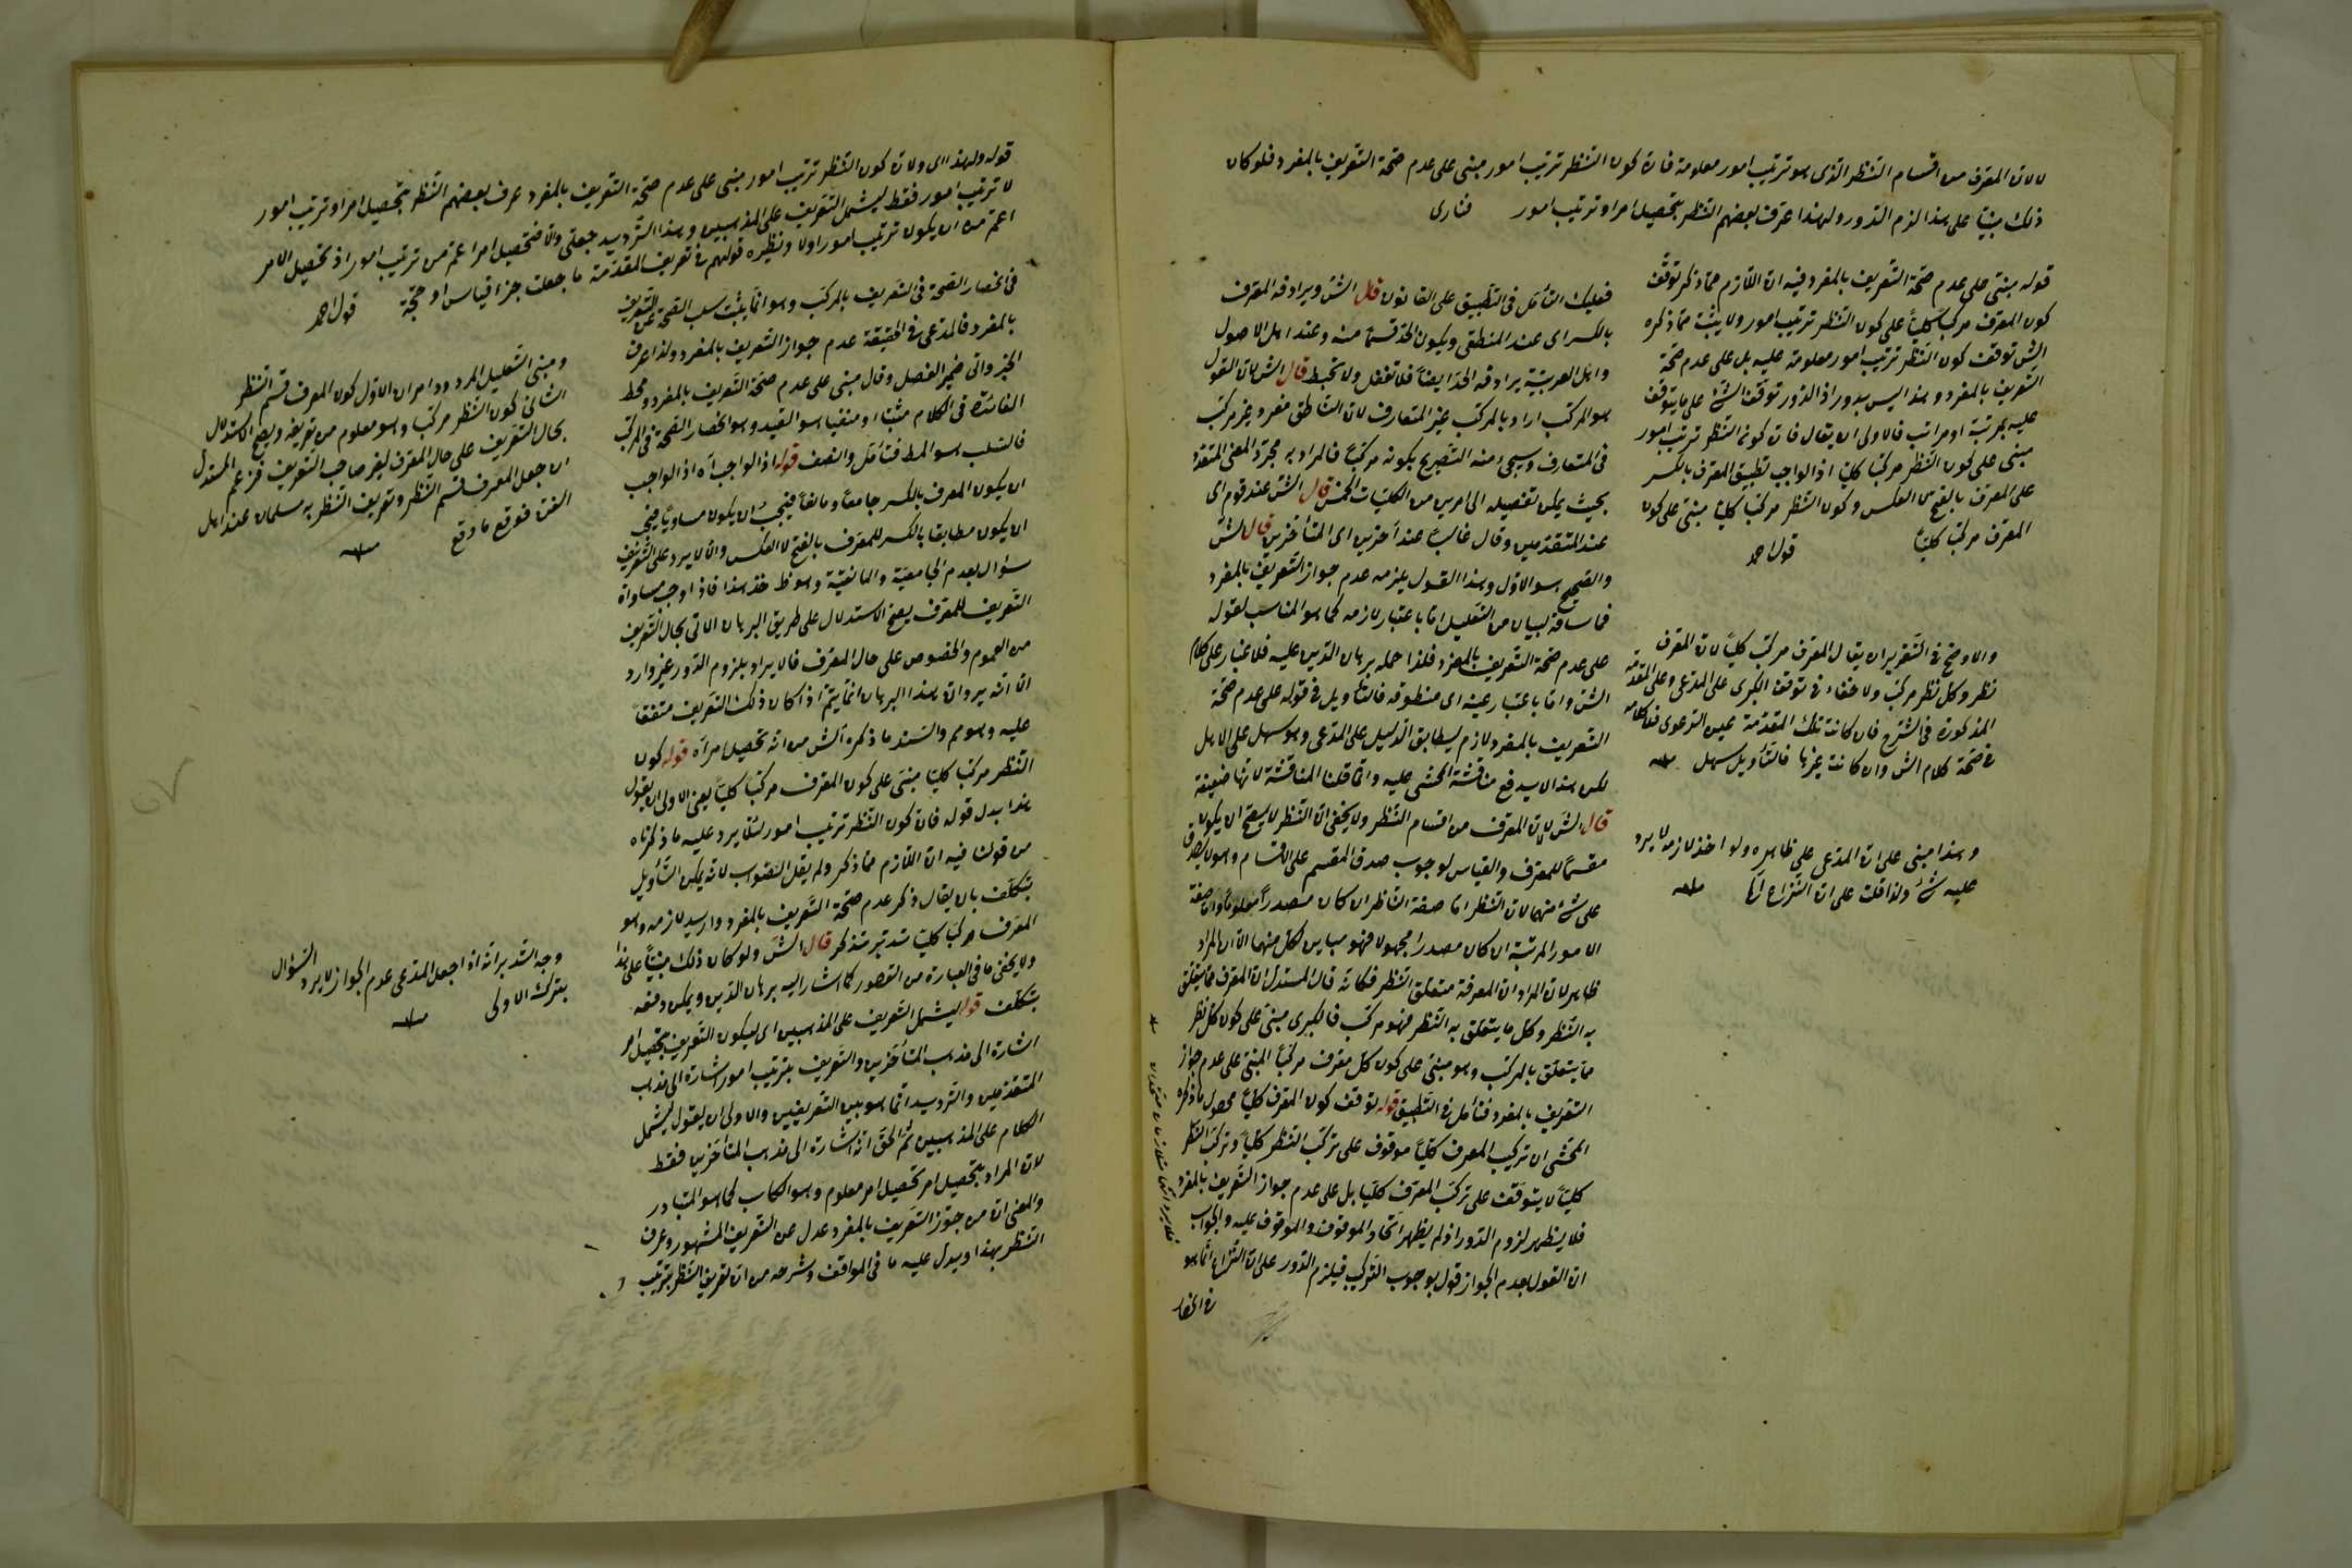 لا لان المعرف من اقسام النظر الذى هو ترتيب امور معلومة فان كون النظر ترتيب امور مبنى على عدم صحة التعريف بالمفرد فلو كان
ذلك مبنيا على هذا لزم الدور ولهذا عرف بعضهم النظر بتحصيل امر او ترتيب امور فنارى
قوله مبنى على عدم صحة التعريف بالمفرد فيه ان اللازم مما ذكر توقف
كون المعرف مركبا كليا على كون النظر ترتيب امور ولا يثبت مما ذكره
الش توقف كون النظر ترتيب امور معلومة عليه بل على عدم صحة
التعريف بالمفرد وهذا ليس بدور اذ الدور توقف الشئ على ما يتوقف
عليه بمرتبة او مراتب فالاولى ان يقال فان كونه النظر ترتيب امور
مبنى على كون النظر مركبا كليا اذ الواجب تطبيق المعرف بالكسر
على المعرف بالفتح لا العكس وكون النظر مركبا كليا مبنى على كون
المعرف مركبا كليا قول احمد
والاوضح فى التقرير ان يقال المعرف مركب كليا لان المعرف
نظر وكل نظر مركب ولا خفاء فى توقف الكبرى على المدعى وعلى المقدمة
المذكورة فى الشرح فان كانت تلك المقدمة عين الدعوى فلا كلام
فى صحة كلام الش وان كانت غيرها فالتأويل سهل منه
وهذا مبنى على ان المدعى على ظاهره ولو اخذ لازمه لا يرد
عليه شئ ولذا قلت على ان النزاع اه منه
فعليك التأمل فى التطبيق على القانون قال الش ويرادفه المعرف
بالكسر اى عند المنطقى ويكون الحد قسما منه وعند اهل الاصول
واهل العربية يرادفه الحد ايضا فلا تغفل ولا تخبط قال الش لان القول
هو المركب اراد بالمركب غير المتعارف لان الناطق مفرد وغير مركب
فى المتعارف وسيجئ منه التصريح بكونه مركبا فالمراد به مجرد المعنى المتعدد
بحيث يمكن تفصيله الى امرين من الكليات الخمس قال الش عند قوم اى
عند المتقدمين وقال غالبا عند آخرين اى المتأخرين قال الش
والصحيح هو الاول وهذا القول يلزمه عدم جواز التعريف بالمفرد
فما ساقه لبيان من التعليل اما باعتبار لازمه كما هو المناسب لقوله
على عدم صحة التعريف بالمفرد فلذا حمله برهان الدين عليه فلا غبار على كلام
الش واما باعتبار عينه اى منطوقه فالتأويل فى قوله على عدم صحة
التعريف بالمفرد لازم ليطابق الدليل على المدعى وهو سهل على الاهل
لكن هذا لا يدفع مناقشة المحشى عليه وانما قلنا المناقشة لانها ضعيفة
قال الش لان المعرف من اقسام النظر ولا يخفى ان النظر لا يصح ان يكون
مقسما للمعرف والقياس لوجوب صدق المقسم على الاقسام وهو لا يصدق
على شئ منهما لان النظر اما صفة الناظر ان كان مصدرا معلوما واما صفة
الامور المرتبة ان كان مصدرا مجهولا فهو مباين لكل منهما الا ان المراد
ظاهر لان المراد ان المعرفة متعلق النظر فكانه قال المستدل ان المعرف مما يتعلق
به النظر وكل ما يتعلق به النظر فهو مركب فالكبرى مبنى على كون كل نظر
مما يتعلق بالمركب وهو مبنى على كون كل معرف مركبا المبنى على عدم جواز
التعريف بالمفرد فتأمل فى التطبيق قوله توقف كون المعرف كليا محصول ما ذكره
المحشى ان تركيب المعرف كليا موقوف على تركب النظر كليا وتركب النظر
كليا لا يتوقف على تركب المعرف كليا بل على عدم جواز التعريف بالمفرد
فلا يظهر لزوم الدور اذ لم يظهر اتحاد الموقوف والموقوف عليه والجواب
ان القول بعدم الجواز قول بوجوب التركيب فيلزم الدور على ان النزاع انما هو
فى انحصار
قوله ولهذا اى ولان كون النظر ترتيب امور مبنى على عدم صحة التعريف بالمفرد عرف بعضهم النظر بتحصيل امر او ترتيب امور
لا ترتيب امور فقط ليشمل التعريف على المذهبين وهذا الترديد جعلى والا فتحصيل امر اعم من ترتيب امور اذ تحصيل الامر
اعم من ان يكون ترتيب امور اولا ونظيره قولهم فى تعريف المقدمة ما جعلت جزء قياس او حجة قول احمد
فى انحصار الصحة فى التعريف بالمركب وهو انما يثبت بسلب الصحة عن التعريف
بالمفرد فالمدعى فى الحقيقة عدم جواز التعريف بالمفرد ولذا عرف
الخبر واتى ضمير الفصل وقال مبنى على عدم صحة التعريف بالمفرد ومحط
الفائدة فى الكلام مثبتا او منفيا هو القيد وهو انحصار الصحة فى المركب
فالسلب هو المط فتأمل وانصف قوله اذ الواجب آه اذ الواجب
ان يكون المعرف بالكسر جامعا ومانعا فيجب ان يكون مساويا فيجب
ان يكون مطابقا بالكسر للمعرف بالفتح لا العكس والا لا يرد على التعريف
سؤال بعدم الجامعية والمانعية وهو ظ خذ هذا فاذا وجب مساواة
التعريف للمعرف يصح الاستدلال على طريق البرهان الانى بحال التعريف
من العموم والخصوص على حال المعرف فالايراد بلزوم الدور غير وارد
الا انه يرد ان هذا البرهان انما يتم اذا كان ذلك التعريف متفقا
عليه وهو مم والسند ما ذكره الش من انه تحصيل امر آه قوله كون
النظر مركبا كليا مبنى على كون المعرف مركبا كليا يعنى الاولى ان يقول
هذا بدل قوله فان كون النظر ترتيب امور لئلا يرد عليه ما ذكرناه
من قولنا فيه ان اللازم مما ذكر ولم يقل الصواب لانه يمكن التأويل
بتكلف بان يقال ذكر عدم صحة التعريف بالمفرد واريد لازمه وهو
المعرف مركبا كليا تدبر تذكر قال الش ولو كان ذلك مبنيا على هذا
ولا يخفى ما فى العبارة من القصور كما اشار اليه برهان الدين ويمكن دفعه
بتكلف قوله ليشمل التعريف على المذهبين اى ليكون التعريف بتحصيل امر
اشارة الى مذهب المتأخرين والتعريف بترتيب امور اشارة الى مذهب
المتقدمين والترديد انما هو بين التعريفين والاولى ان يقول ليشمل
الكلام على المذهبين ثم الحق انه اشارة الى مذهب المتأخرين فقط
لان المراد بتحصيل امر تحصيل امر معلوم وهو الكاسب كما هو المتبادر
والمعنى ان من جوز التعريف بالمفرد عدل عن التعريف المشهور وعرف
النظر بهذا ويدل عليه ما فى المواقف وشرحه من ان تعريف النظر بترتيب
ومبنى التعليل المردود امران الاول كون المعرف قسم النظر
الثانى كون النظر مركبا وهو معلوم من تعريفه ويصح الاستدلال
بحال التعريف على حال المعرف لغير صاحب التعريف فزعم المستدل
ان جعل المعرف قسم النظر وتعريف النظر به مسلمان عند اهل
الفن فوقع ما وقع منه
وجه التدبر انه اذا جعل المدعى عدم الجواز لا يرد السؤال
بترك الاولى منه